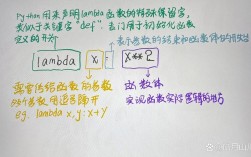 Python用来声明lambda函数的特殊保留字,
类似于关键字"def", 专门用于初始化函数
定义的开始
表示参数的结束和函数体的开始
lambda x : x**2
需要传给函数的参数
多个参数用逗号隔开
eg. lambda x,y:x+y
函数体
实现函数实际逻辑的地方